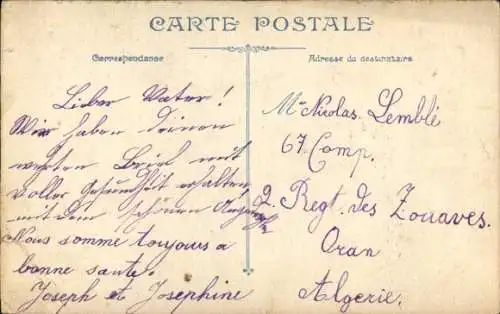 CARTE POSTALE
Correspondance
Adresse du destinataire
Lieber Vater!
Wir haben deinen
werten Brief mit
voller Gesundheit erhalten
mit dem schönen
Nous somme toujours a
bonne sante.
Joseph et Josephine
Mr Nicolas Lemblé
67 Comp.
2. Regt. des Zouaves.
Oran
Algerie.